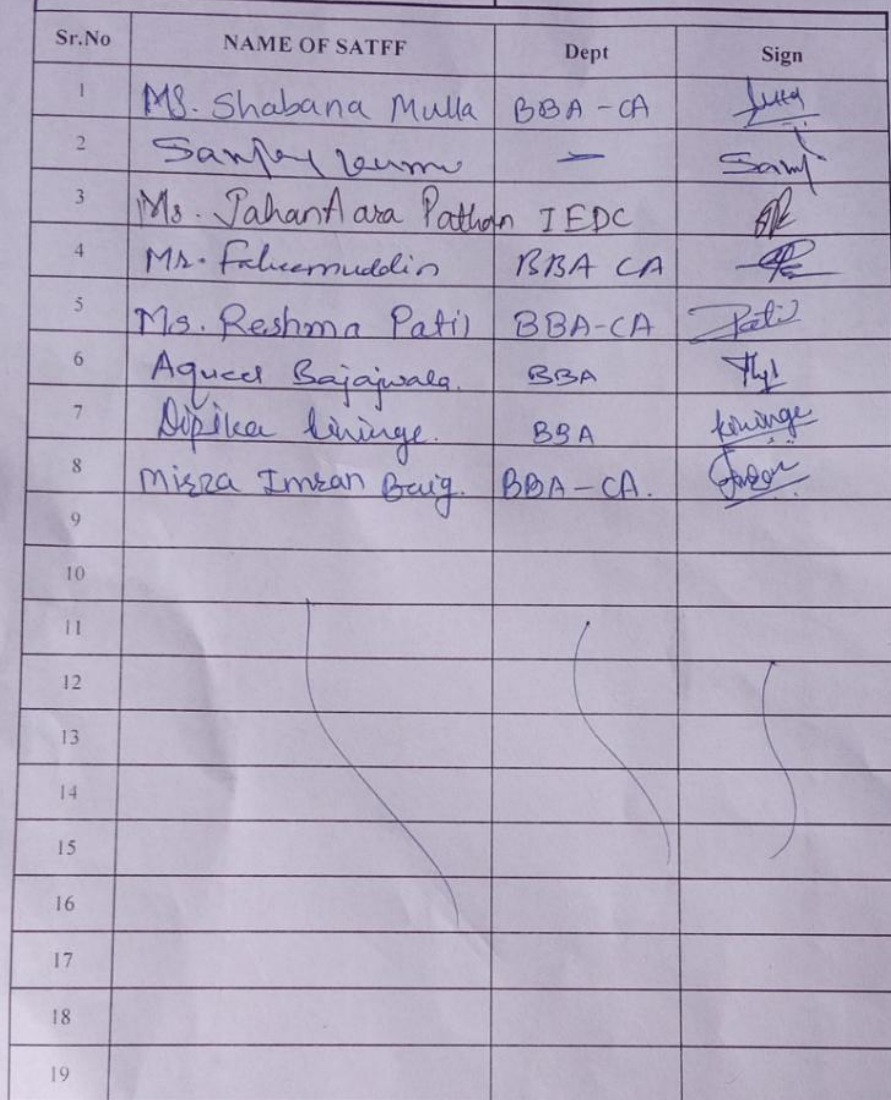 Sr.No NAME OF SATFF Dept Sign
1 Ms. Shabana Mulla BBA-CA
2 Sanjay —
3 Ms. JahanAara Pathan IEDC
4 Mr. Faheemuddin BBA CA
5 Ms. Reshma Patil BBA-CA Patil
6 Aqueel Bajajwala. BBA
7 Dipika kininge. BBA kininge
8 Mirza Imran Baig. BBA-CA.
9
10
11
12
13
14
15
16
17
18
19